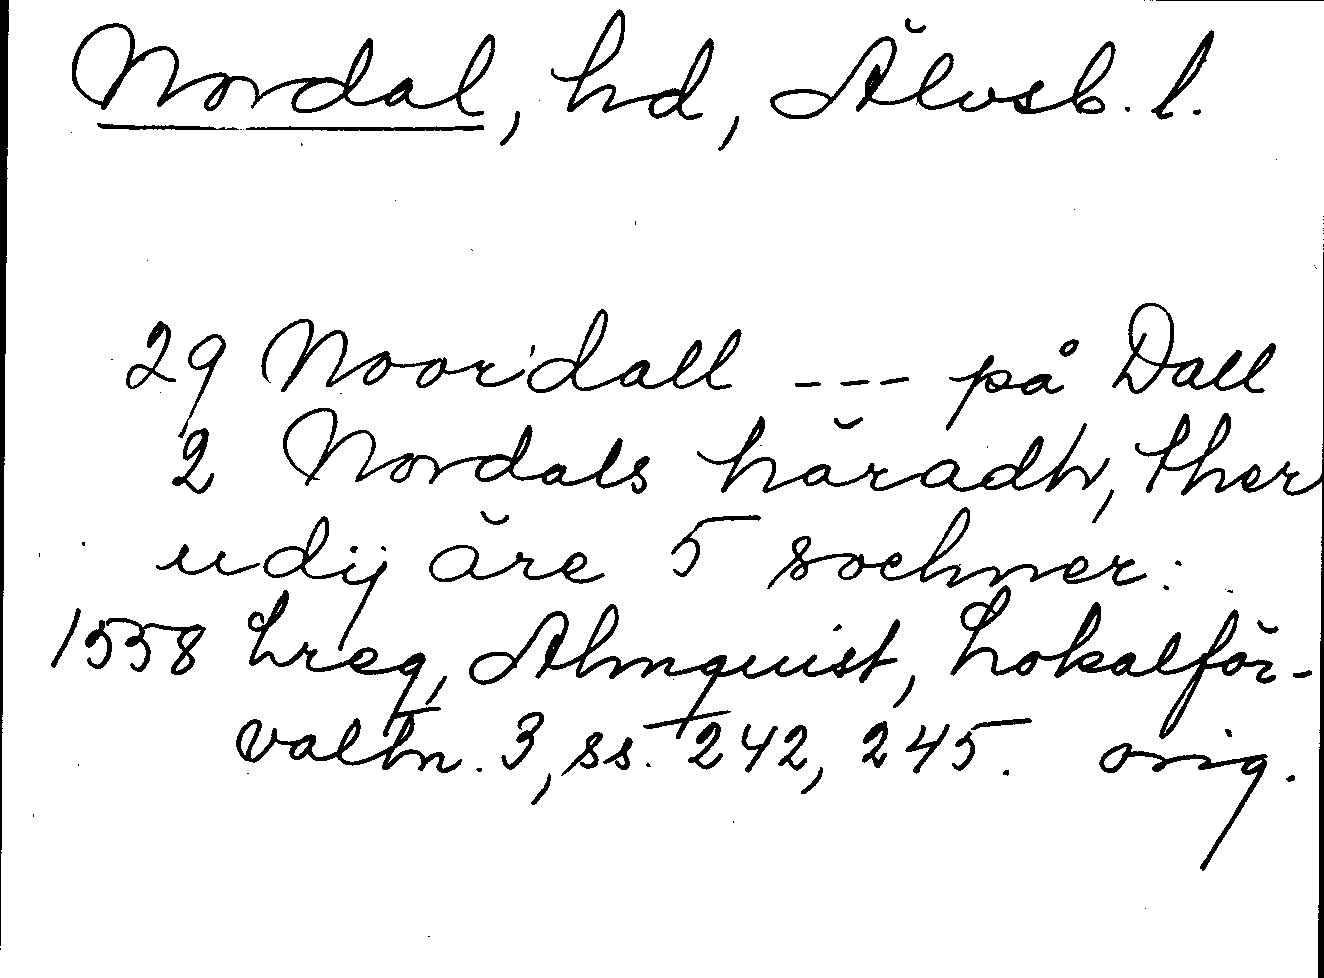 Nordal, hd, Älvsb. l.
29 Noordall --- på Dall
2 Nordals häradh, ther
udij äre 5 sochner:
1558 Lreg, Almquist, Lokalför-
valtn. 3, ss. 242, 245. orig.